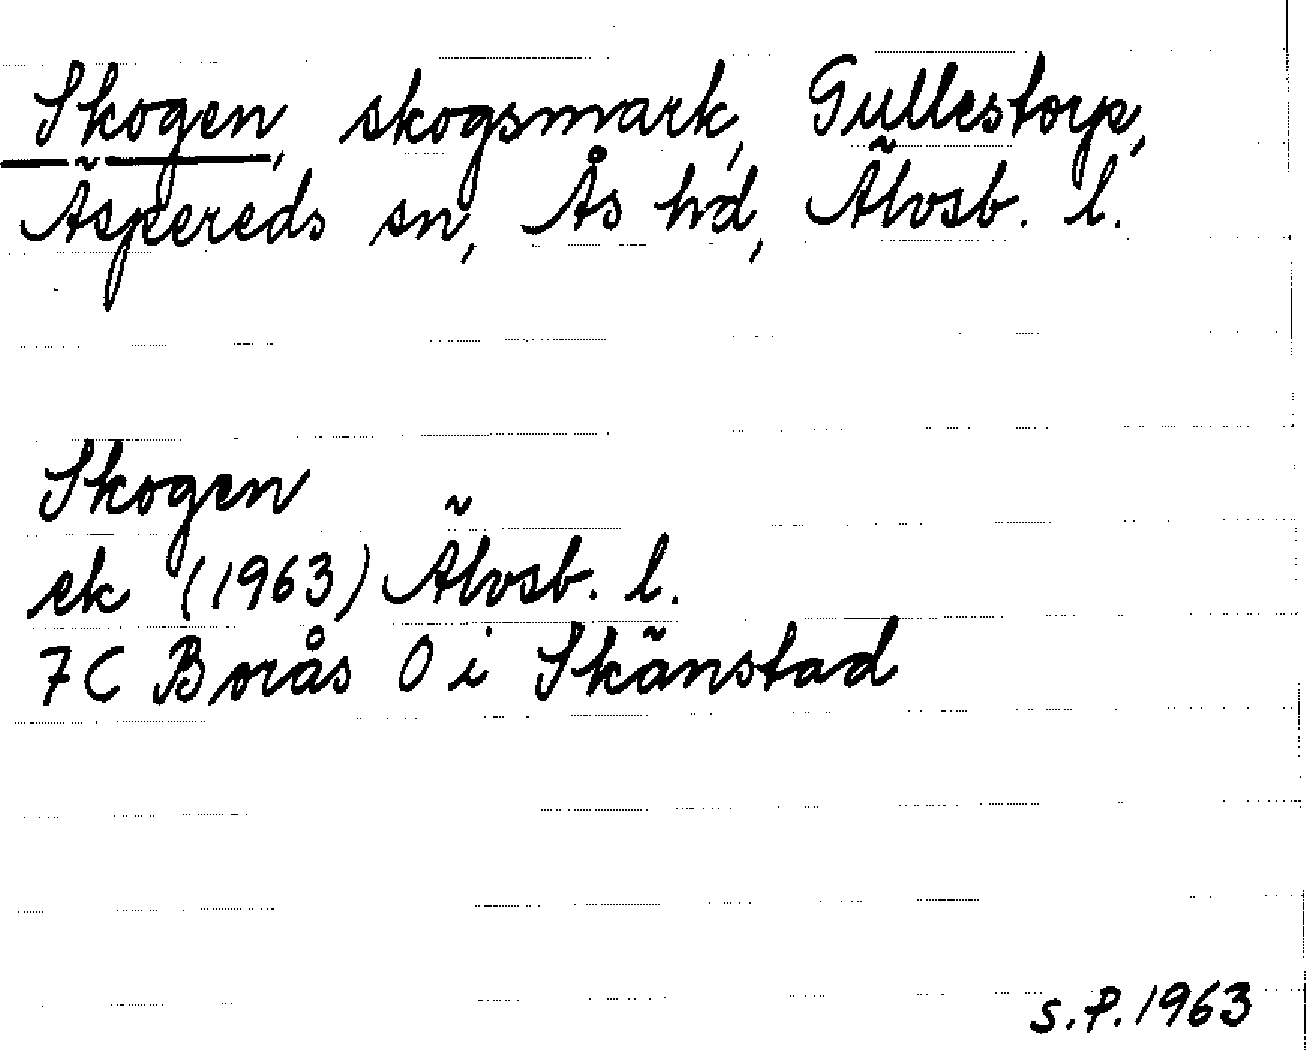 Skogen, skogsmark, Gullestorp,
Äspereds sn, Ås hd, Älvsb. l.
Skogen
ek (1963) Älvsb. l.
7C Borås O i Skänstad
S.P. 1963